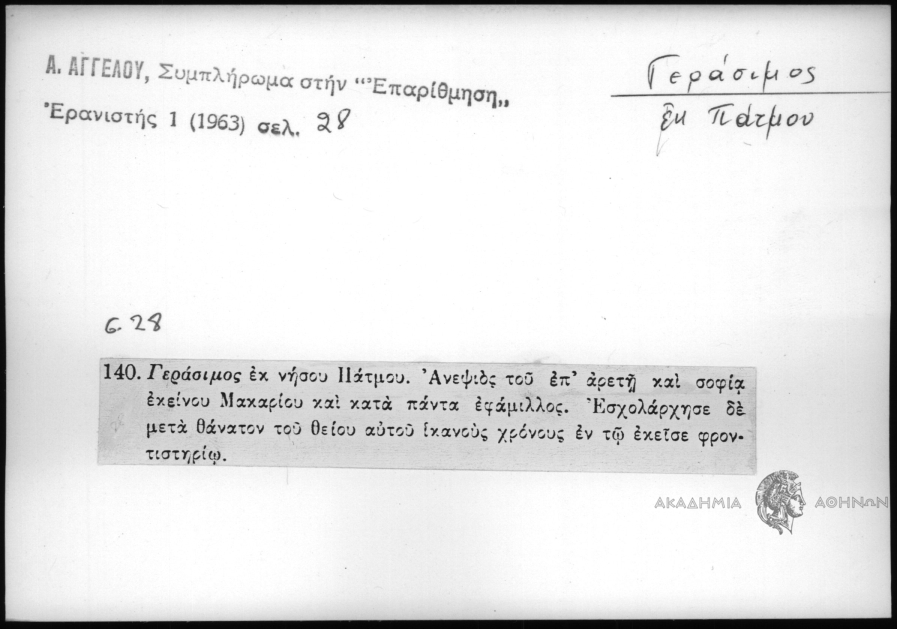 Α. ΑΓΓΕΛΟΥ, Συμπλήρωμα στήν “Ἐπαρίθμηση„
Ἐρανιστής 1 (1963) σελ. 28
Γεράσιμος
ἐκ Πάτμου
σ. 28
140. Γεράσιμος ἐκ νήσου Πάτμου. Ἀνεψιὸς τοῦ ἐπ' ἀρετῇ καὶ σοφίᾳ
ἐκείνου Μακαρίου καὶ κατὰ πάντα ἐφάμιλλος. Ἐσχολάρχησε δὲ
μετὰ θάνατον τοῦ θείου αὐτοῦ ἱκανοὺς χρόνους ἐν τῷ ἐκεῖσε φρον-
τιστηρίῳ.
ΑΚΑΔΗΜΙΑ ΑΘΗΝΩΝ